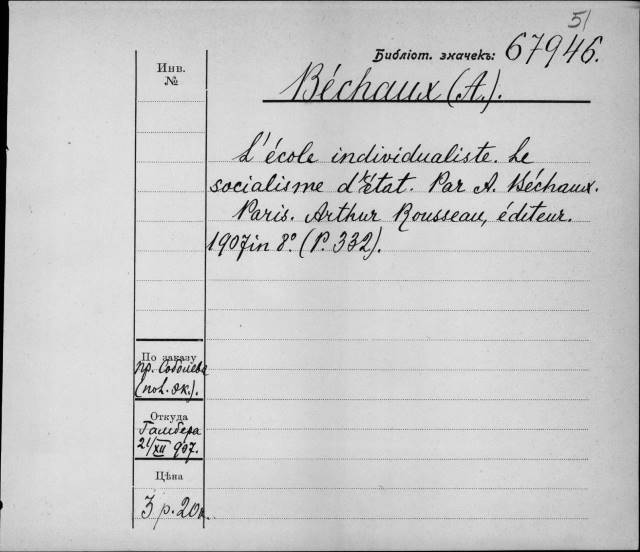 51
Библіот. значекъ: 67946.
Инв.
№
Béchaux (A.).
L'école individualiste. Le
socialisme d'Etat. Par A. Béchaux.
Paris. Arthur Rousseau, éditeur.
1907 in 8º. (P. 332).
По заказу
пр. Соболева
(пол. эк.).
Откуда
Гамбера
21/XII 907.
Цѣна
3 р. 20к.